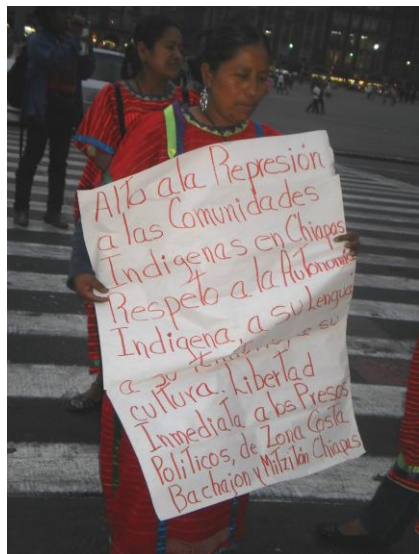 Alto a la Represión
a las Comunidades
Indigenas en Chiapas
Respeto a la Autonomia
Indigena, a su Lengua
a su
cultura. Libertad
Inmediata a los Presos
Politicos, de Zona Costa
Bachajon y Mitzitón Chiapas